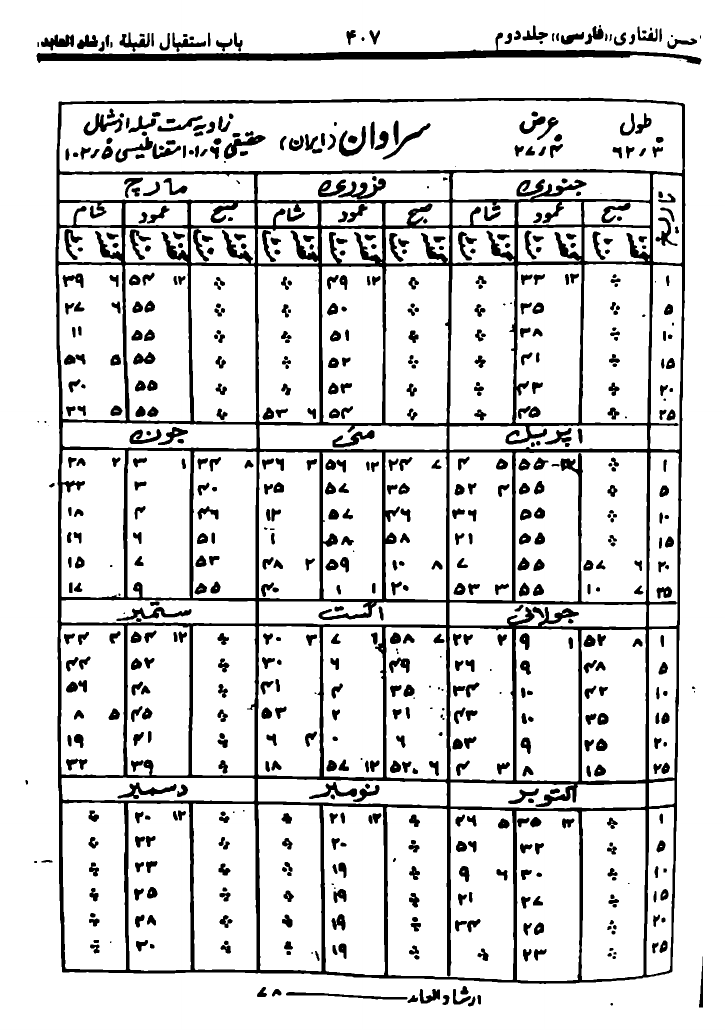 حسن الفتاوی «فارسی» جلد دوم ۴۰۷ باب استقبال القبلة "ارشاد العابد"
طول عرض سراوان (ایران) زاویه سمت قبله از شمال
۶۲/۳ ۲۷/۴ حقیقی ۱۰۱/۶ مقناطیسی ۱۰۲/۵
تاریخ جنوری فروری مارچ
صبح عمود شام صبح عمود شام صبح عمود شام
گھنٹہ منٹ گھنٹہ منٹ گھنٹہ منٹ گھنٹہ منٹ گھنٹہ منٹ گھنٹہ منٹ گھنٹہ منٹ گھنٹہ منٹ گھنٹہ منٹ
۱ ÷ ۱۲ ۳۳ ÷ ÷ ۱۲ ۴۹ ÷ ÷ ۱۲ ۵۴ ۶ ۳۹
۵ ÷ ۳۵ ÷ ÷ ۵۰ ÷ ÷ ۵۵ ۶ ۲۷
۱۰ ÷ ۳۸ ÷ ÷ ۵۱ ÷ ÷ ۵۵ ۱۱
۱۵ ÷ ۴۱ ÷ ÷ ۵۲ ÷ ÷ ۵۵ ۵ ۵۶
۲۰ ÷ ۴۳ ÷ ÷ ۵۳ ÷ ÷ ۵۵ ۴۰
۲۵ ÷ ۴۵ ÷ ÷ ۵۴ ۶ ۵۳ ÷ ۵۵ ۵ ۲۶
اپریل مئی جون
۱ ÷ ۱۲ ۵۵ ۵ ۴ ۷ ۲۴ ۱۲ ۵۶ ۳ ۳۶ ۸ ۳۴ ۱ ۳ ۲ ۲۸
۵ ÷ ۵۵ ۴ ۵۲ ۳۵ ۵۷ ۲۵ ۴۰ ۳ ۲۲
۱۰ ÷ ۵۵ ۳۶ ۴۶ ۵۷ ۱۲ ۴۶ ۴ ۱۸
۱۵ ÷ ۵۵ ۲۱ ۵۸ ۵۸ ۱ ۵۱ ۶ ۱۶
۲۰ ۶ ۵۷ ۵۵ ۷ ۸ ۱۰ ۵۹ ۲ ۴۸ ۵۳ ۷ ۱۵
۲۵ ۷ ۱۰ ۵۵ ۳ ۵۳ ۲۰ ۱ ۱ ۴۰ ۵۵ ۹ ۱۷
جولائی اگست ستمبر
۱ ۸ ۵۲ ۱ ۹ ۲ ۲۲ ۷ ۵۸ ۷ ۳ ۲۰ ÷ ۱۲ ۵۴ ۴ ۳۴
۵ ۴۸ ۹ ۲۶ ۴۹ ۶ ۳۰ ÷ ۵۲ ۴۴
۱۰ ۴۲ ۱۰ ۳۴ ۳۵ ۴ ۴۱ ÷ ۴۸ ۵۶
۱۵ ۳۵ ۱۰ ۴۳ ۲۱ ۲ ۵۳ ÷ ۴۵ ۵ ۸
۲۰ ۲۵ ۹ ۵۳ ۶ ۰ ۴ ۶ ÷ ۴۱ ۱۹
۲۵ ۱۵ ۸ ۳ ۴ ۶ ۵۲ ۱۲ ۵۷ ۱۸ ÷ ۳۹ ۳۲
اکتوبر نومبر دسمبر
۱ ÷ ۱۲ ۳۵ ۵ ۴۶ ÷ ۱۲ ۲۱ ÷ ÷ ۱۲ ۲۰ ÷
۵ ÷ ۳۲ ۵۶ ÷ ۲۰ ÷ ÷ ۲۲ ÷
۱۰ ÷ ۳۰ ۶ ۹ ÷ ۱۹ ÷ ÷ ۲۳ ÷
۱۵ ÷ ۲۷ ۲۱ ÷ ۱۹ ÷ ÷ ۲۵ ÷
۲۰ ÷ ۲۵ ۳۴ ÷ ۱۹ ÷ ÷ ۲۸ ÷
۲۵ ÷ ۲۳ ÷ ÷ ۱۹ ÷ ÷ ۳۰ ÷
ارشاد العابد ــــــ ۷۸